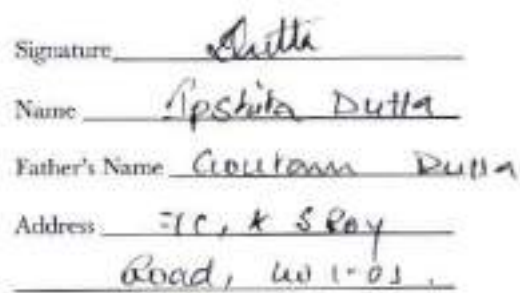 Signature Dutta
Name Ipshita Dutta
Father's Name Goutam Dutta
Address K S Roy
Road,